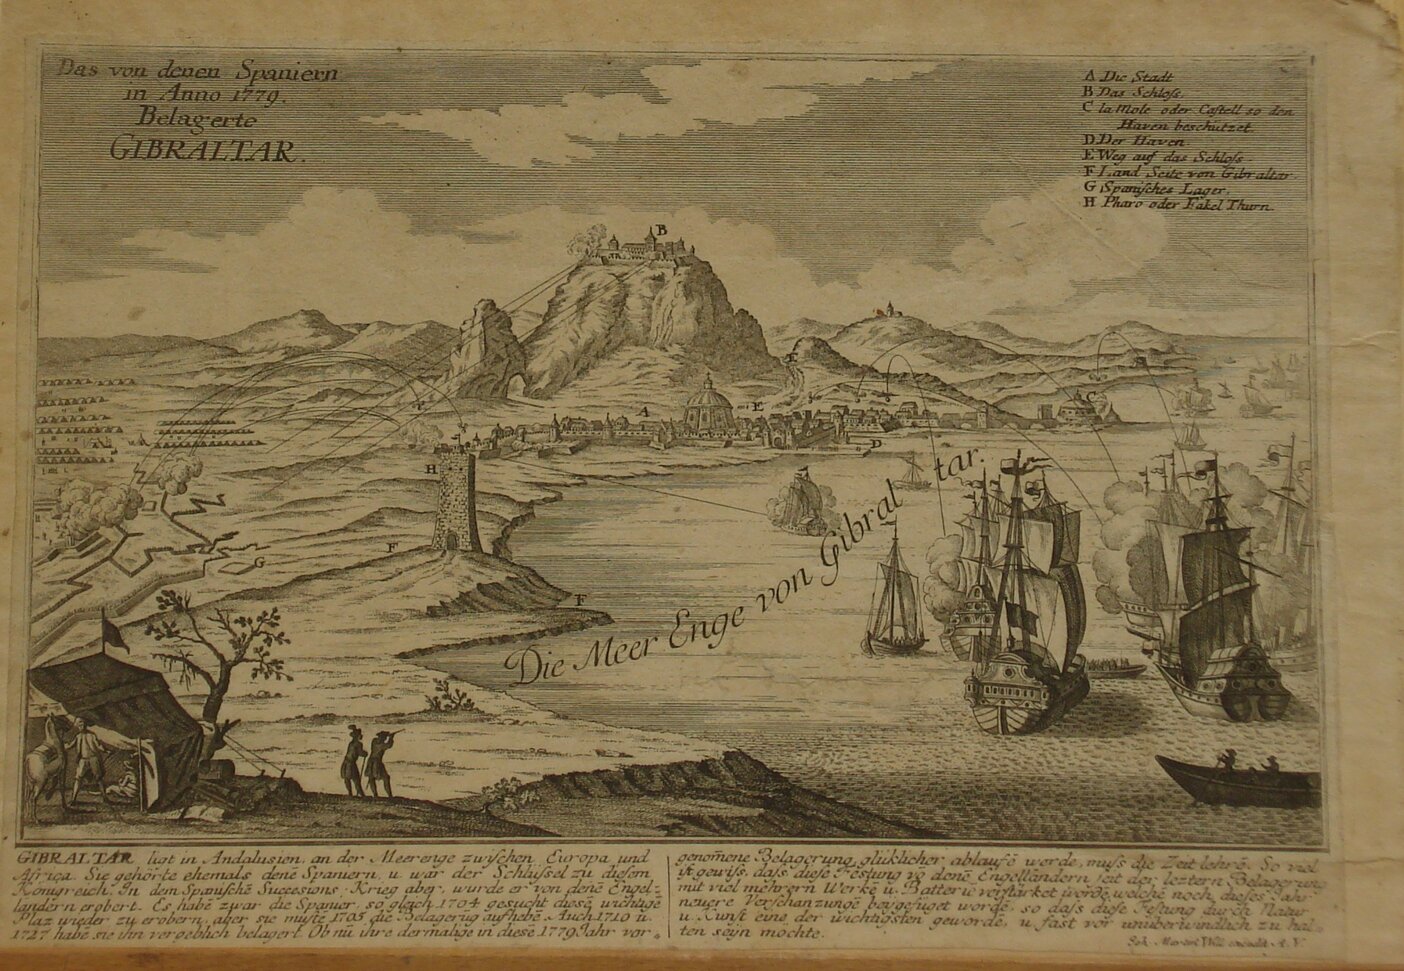 Das von denen Spaniern
in Anno 1779.
Belagerte
GIBRALTAR.
A Die Stadt
B Das Schloſs.
C la Mole oder Caſtell so den
Haven beschützet.
D Der Haven
E Weg auf das Schloſs.
F Land Seite von Gibraltar.
G Spaniſches Lager.
H Pharo oder Fakel Thurn.
B
E
A
E
C
D
H
F
G
F
Die Meer Enge von Gibraltar.
GIBRALTAR ligt in Andalusien, an der Meerenge zwiſchen Europa und
Africa. Sie gehörte ehemals denē Spaniern, u. war der Schlüſsel zu dieſem
Königreich. In dem Spaniſchē Succesions-Krieg aber, wurde er von denē Engel-
ländern erobert. Es habē zwar die Spanier, so gleich 1704 gesucht dieſē wichtige
Plaz wieder zu erobern, aber sie muſtē 1705 die Belagerūg aufhebē. Auch 1710 u.
1727 habē sie ihn vergeblich belagert. Ob nū ihre dermalige in dieſē 1779 Jahr vor-
genom̄ene Belagerung glüklicher ablaufē werde, muſs die Zeit lehrē. So viel
iſt gewiſs, daſs dieſe Feſtung vō denē Engelländern ſeit der leztern Belagerung
mit viel mehrern Werkē u. Batteriē verſtärket wordē, welchē noch dieſes Jahr
neuere Verſchanzungē beygefüget wordē, so daſs dieſe Feſtung durch Natur
u. Kunſt eine der wichtigſten gewordē, u. faſt vor unüberwindlich zu hal-
ten seyn möchte.
Joh. Martin Will excudit A. V.